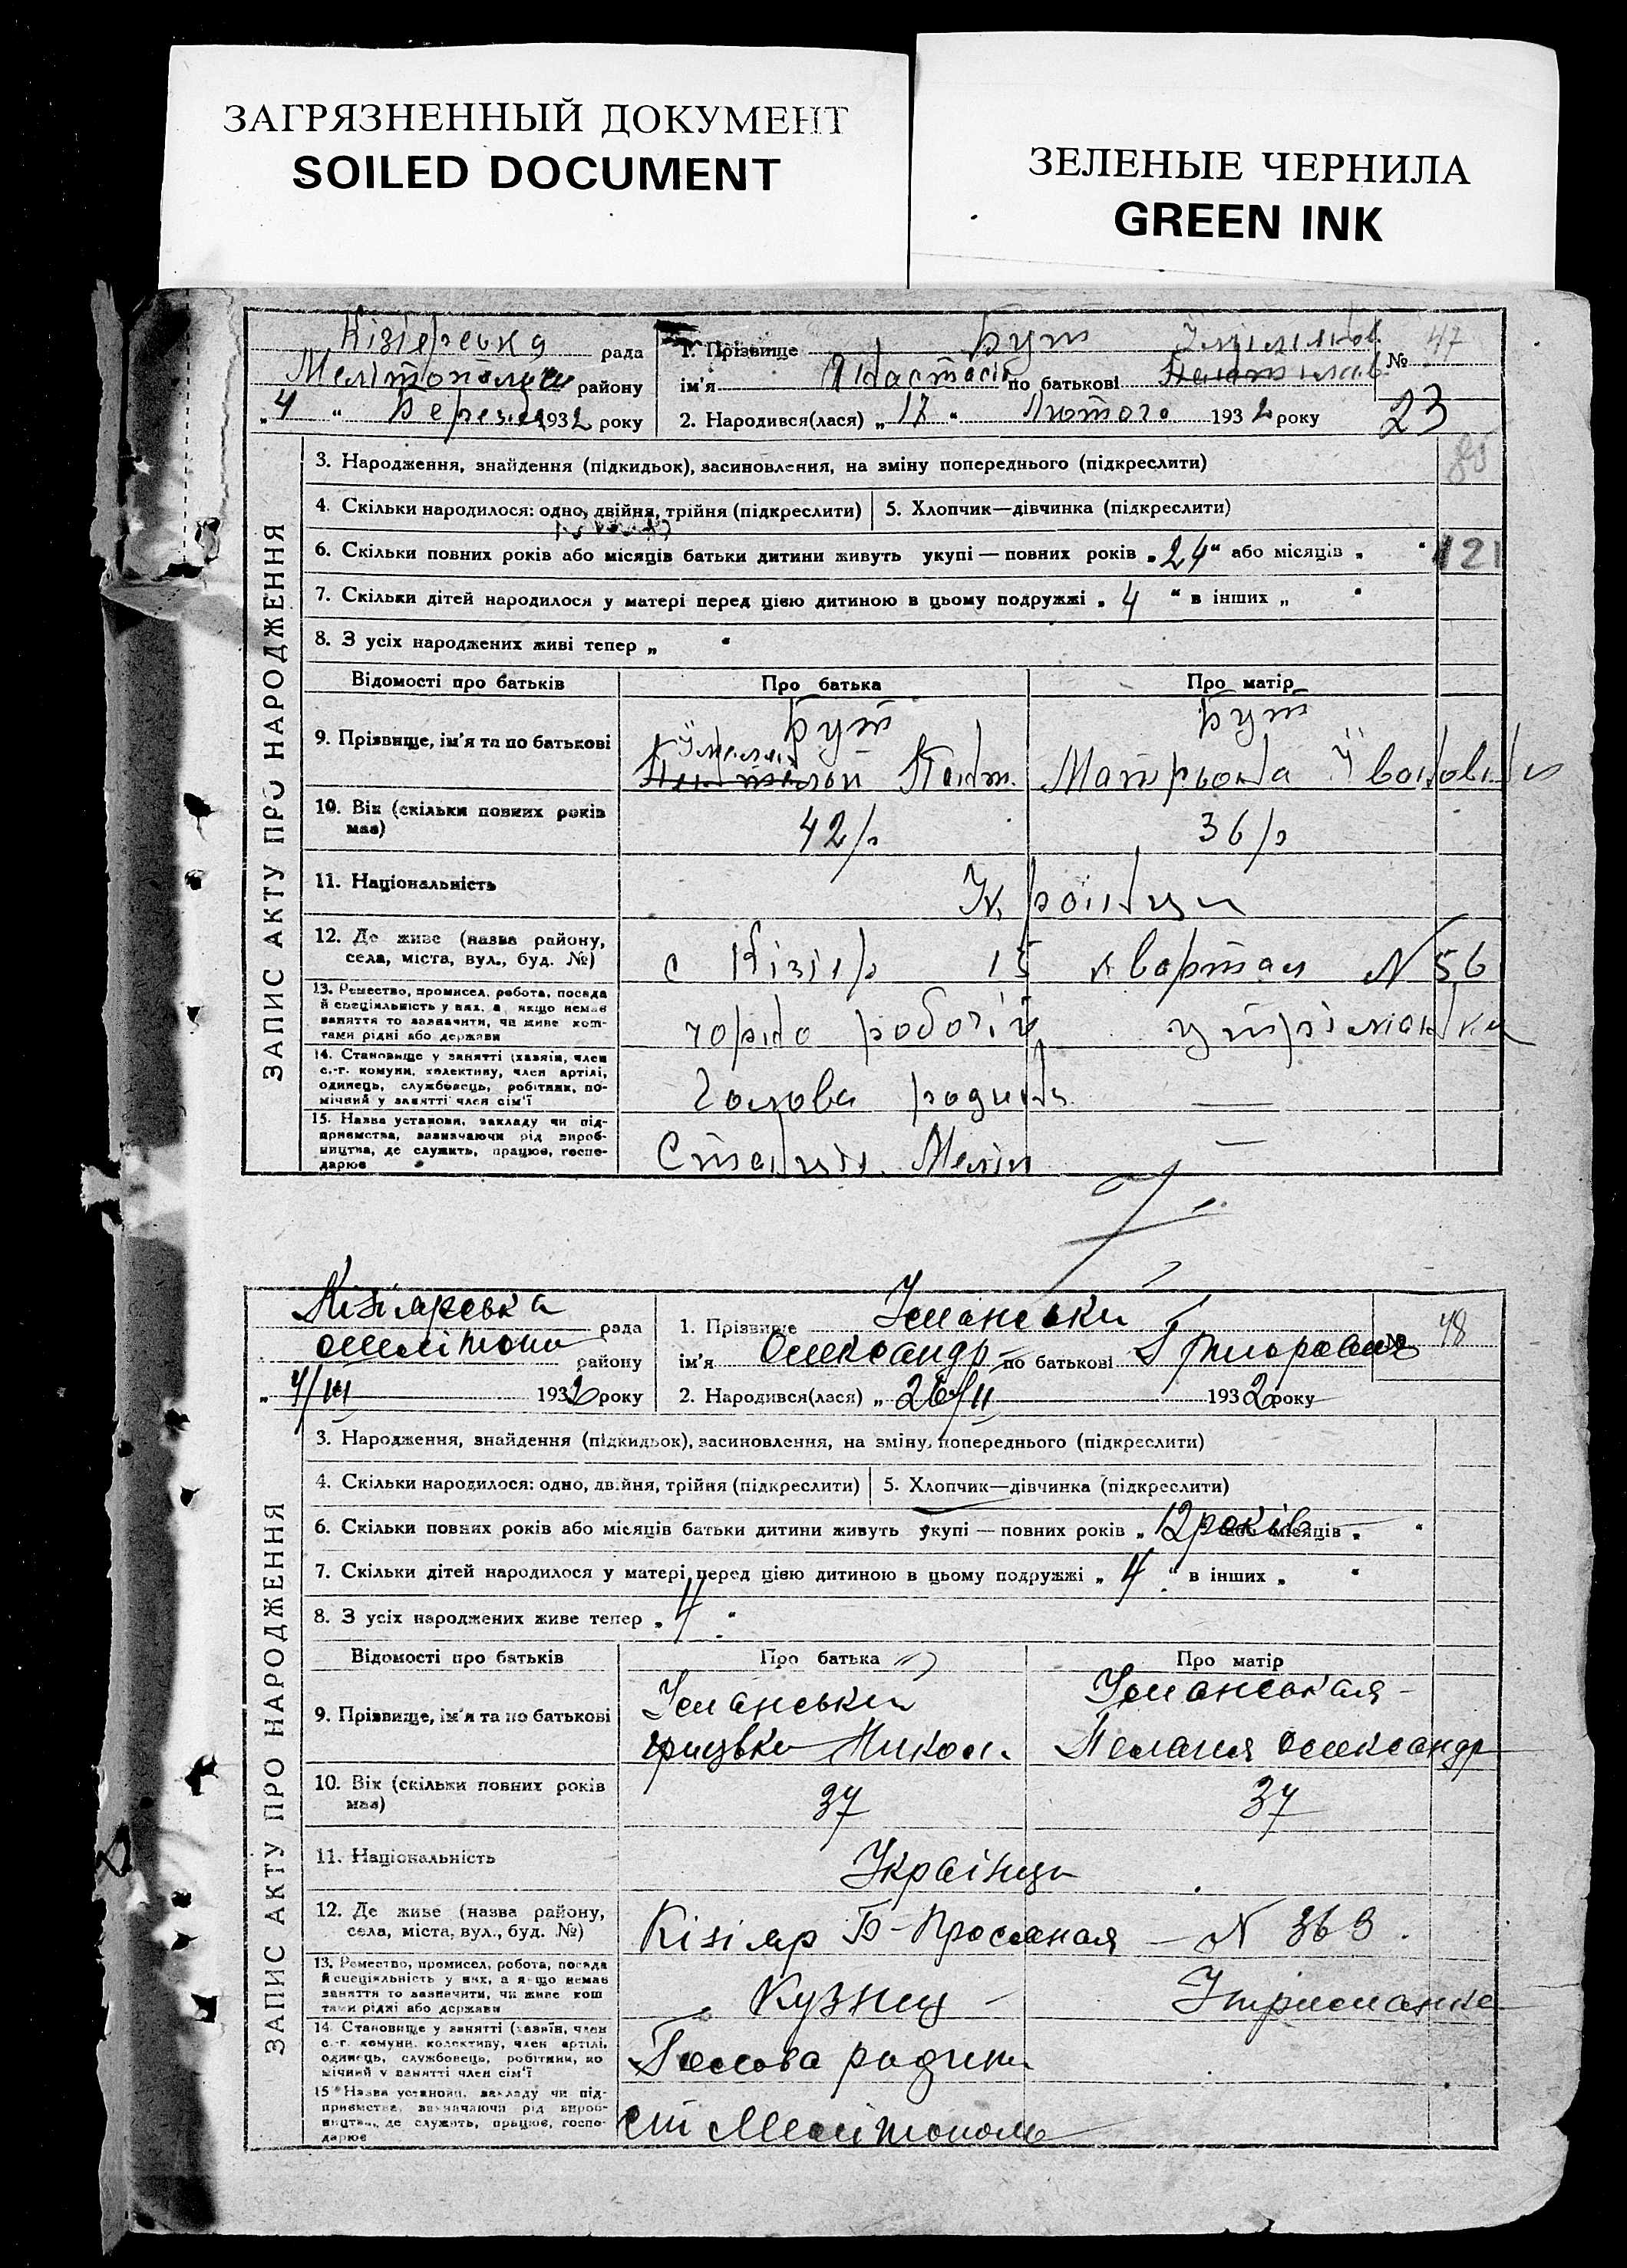 ЗАГРЯЗНЕННЫЙ ДОКУМЕНТ
SOILED DOCUMENT
ЗЕЛЕНЫЕ ЧЕРНИЛА
GREEN INK
ЗАПИС АКТУ ПРО НАРОДЖЕННЯ
рада
району
„4“ 1932 року
1. Прізвище Бут
ім'я по батькові
2. Народився(лася) „17“ Лютого 1932 року
№ 47
23
3. Народження, знайдення (підкидьок), засиновлення, на зміну попереднього (підкреслити)
85
4. Скільки народилося: одно, двійня, трійня (підкреслити)
5. Хлопчик—дівчинка (підкреслити)
6. Скільки повних років або місяців батьки дитини живуть укупі — повних років „24“ або місяців „ “
121
7. Скільки дітей народилося у матері перед цією дитиною в цьому подружжі „4“ в інших „ “
8. З усіх народжених живі тепер „ “
Відомості про батьків
Про батька
Про матір
9. Прізвище, ім'я та по батькові
Бут
Бут
Пант.
Матрьона Івановна
10. Вік (скільки повних років має)
42 р
36 р
11. Національність
12. Де живе (назва району, села, міста, вул., буд. №)
с Кізіяр 15 квартал N 56
13. Ремество, промисел, робота, посада
й спеціяльність у них, а якщо немає
заняття то зазначити, чи живе кош-
тами рідні або держави
чорно робочій
утріманка
14. Становище у занятті (хазяїн, член
с.-г. комуни, колективу, член артілі,
одинець, службовець, робітник, по-
мічний у занятті член сім'ї
Голова родини
—
15. Назва установи, закладу чи під-
приємства, зазначаючи рід вироб-
ництва, де служить, працює, госпо-
дарює
Станція Меліт
—
ЗАПИС АКТУ ПРО НАРОДЖЕННЯ
Кізіярська рада
Мелітопи району
„4/III 1932 року
1. Прізвище Уманськи
ім'я Олександр по батькові Григорович
2. Народився(лася) „26/II 1932 року
№ 48
3. Народження, знайдення (підкидьок), засиновлення, на зміну попереднього (підкреслити)
4. Скільки народилося: одно, двійня, трійня (підкреслити)
5. Хлопчик—дівчинка (підкреслити)
6. Скільки повних років або місяців батьки дитини живуть укупі — повних років „12 років або місяців „ “
7. Скільки дітей народилося у матері перед цією дитиною в цьому подружжі „4“ в інших „ “
8. З усіх народжених живе тепер „4“
Відомості про батьків
Про батька
Про матір
9. Прізвище, ім'я та по батькові
Уманськи
Уманськая
Микол.
Пелагея Олександр
10. Вік (скільки повних років має)
37
37
11. Національність
Українци
12. Де живе (назва району, села, міста, вул., буд. №)
Кізіяр Б-Просяная – N 363.
13. Ремество, промисел, робота, посада
й спеціяльність у них, а якщо немає
заняття то зазначити, чи живе кош
тами рідні або держави
Кузнец –
Утриманка
14. Становище у занятті (хазяїн, член
с.-г. комуни, колективу, член артілі,
одинець, службовець, робітник, по
мічний у занятті член сім'ї
Голова родини
15. Назва установи, закладу чи під-
приємства, зазначаючи рід вироб-
ництва, де служить, працює, госпо-
дарює
ст Мелітополь